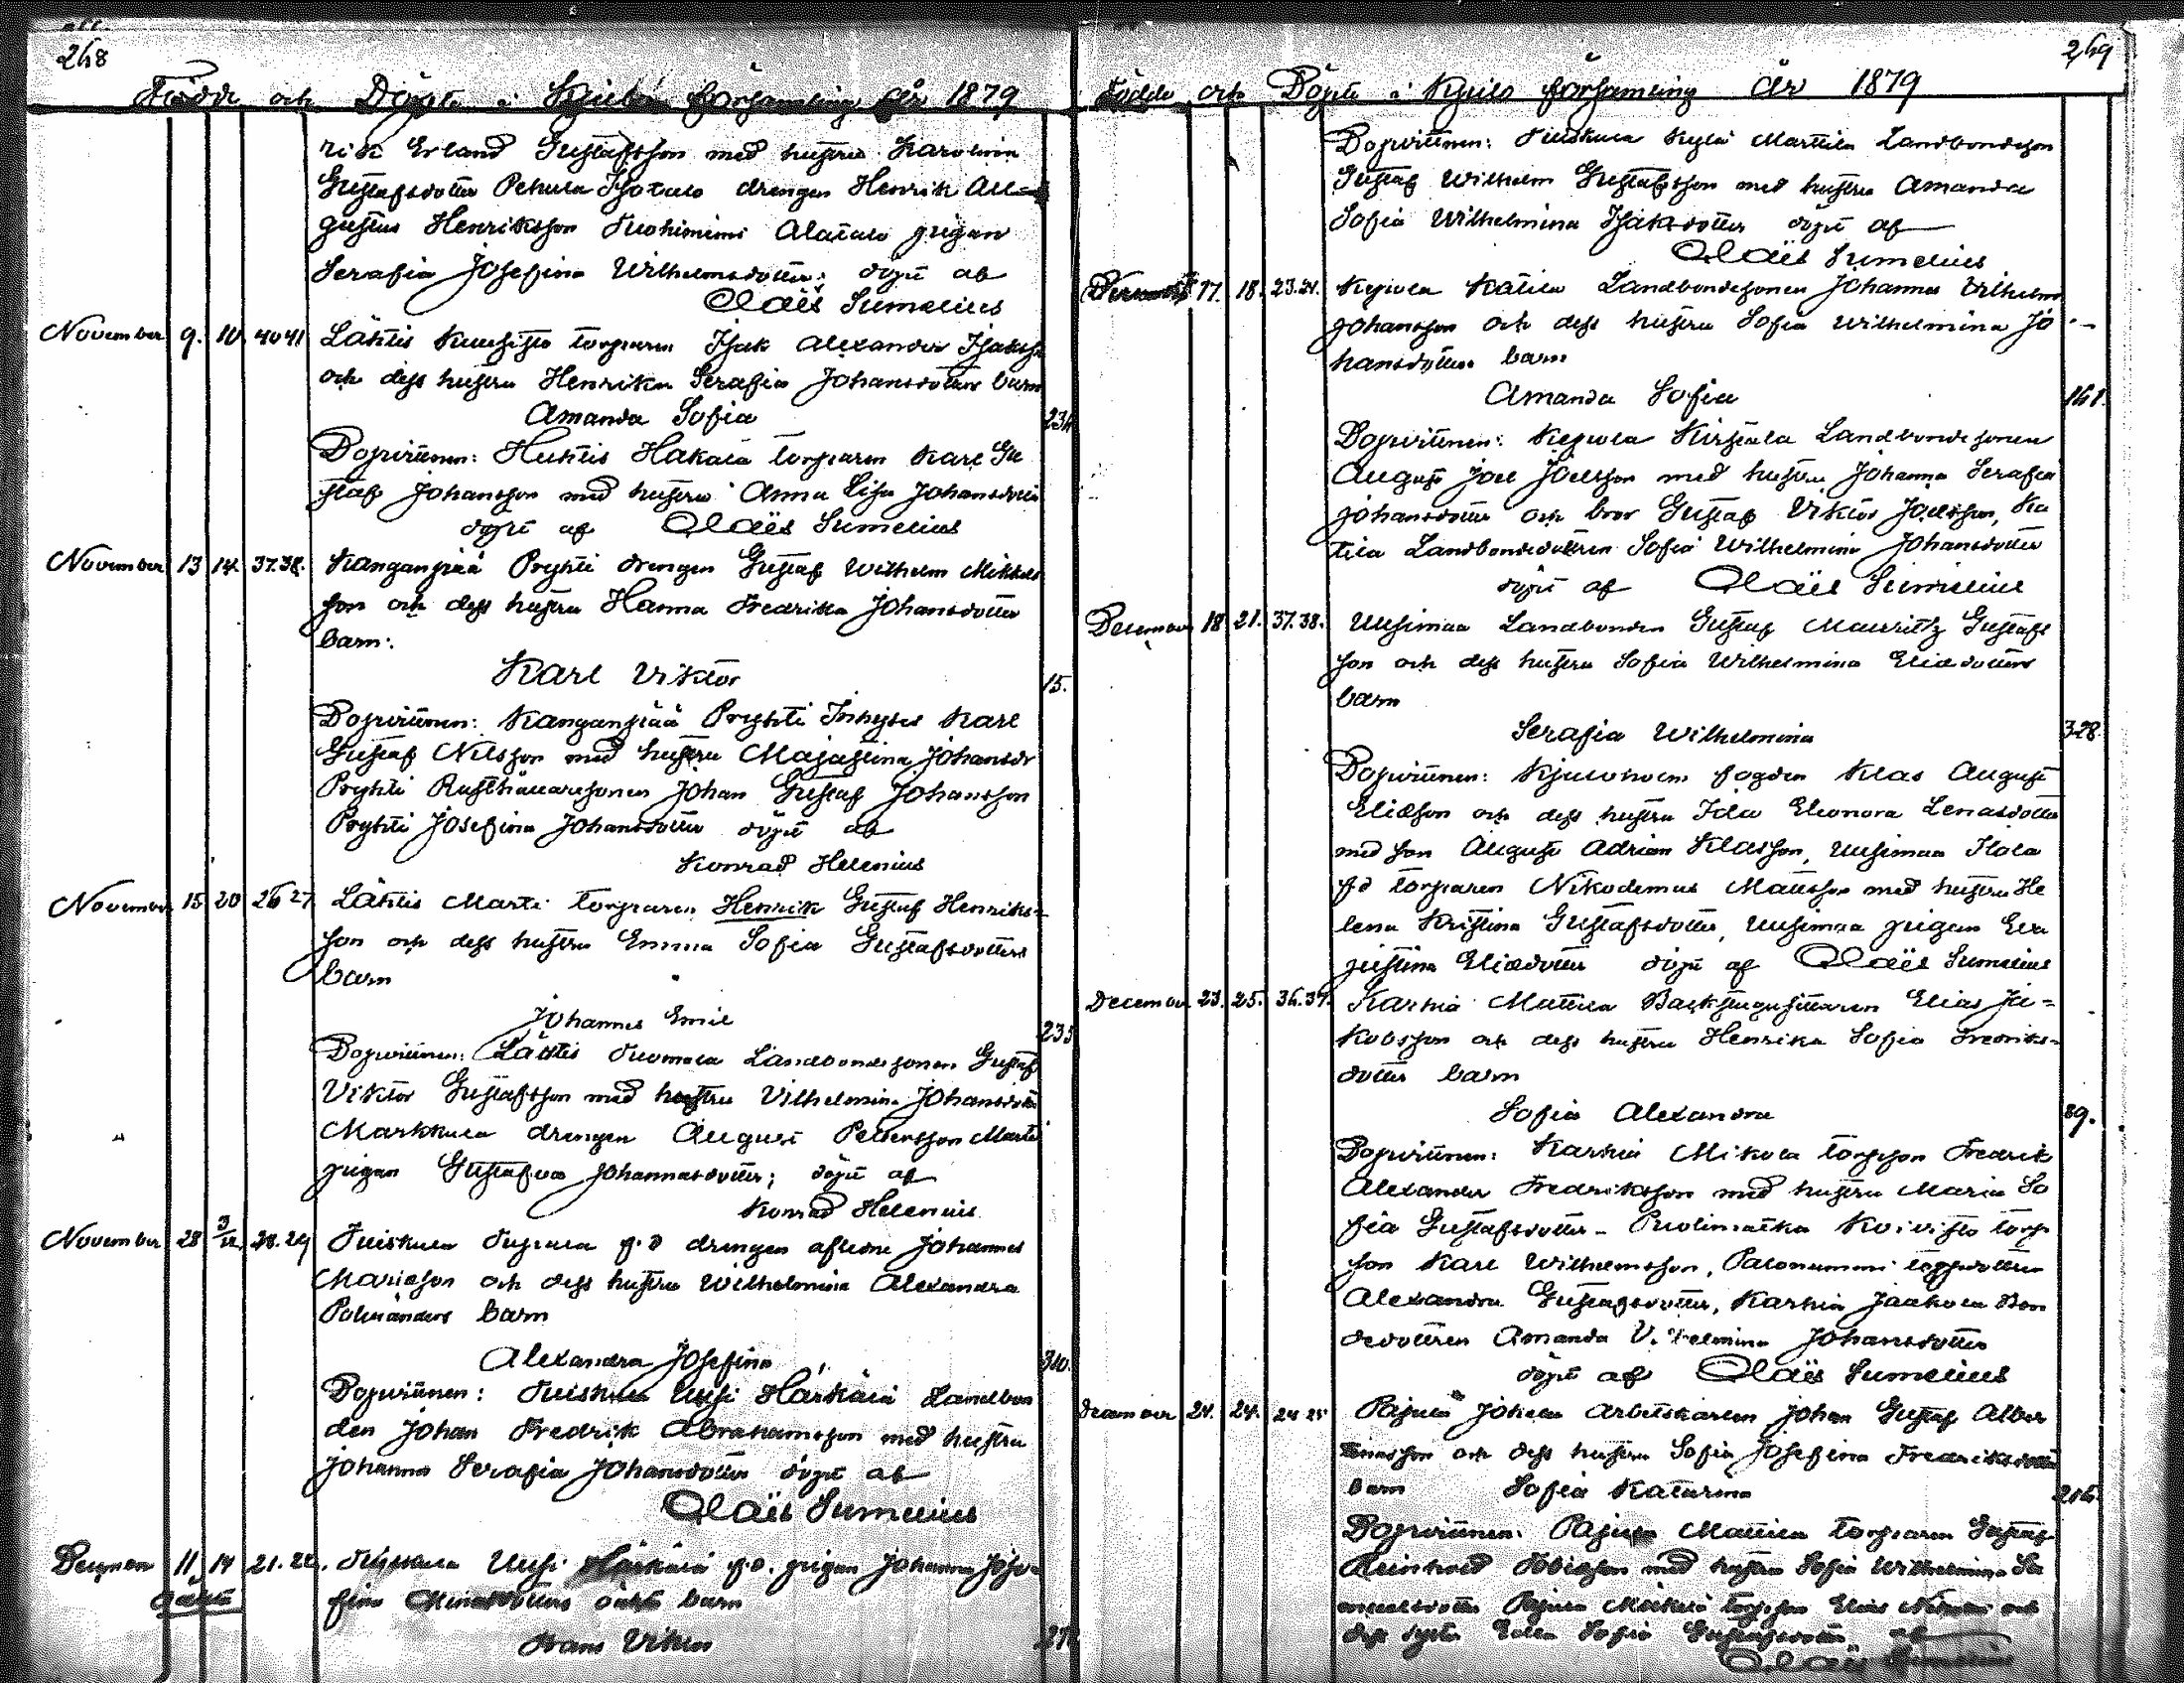 268
Födde och Döpte i Kjulo församling år 1879
rik Erland Gustafsson med hustru Karolina
Gustafsdotter Pehula Isotalo drengen Henrik Au=
gustus Henriksson Alatalo pigan
Serafia Josefina Wilhelmsdotter; döpt af
Claës Sumelius
November 9. 10. 40 41 Lähtis Kuusisto torparen Isak Alexander Isaks
och dess hustru Henrika Serafia Johansdotters barn
Amanda Sofia 234
Dopvittnen: Huhtis Hakala torparen Karl Gu
staf Johansson med hustru Anna Lisa Johansdotter
döpt af Claës Sumelius
November 13 14. 37.38. Kanganpää Pryhti drengen Gustaf Wilhelm Mikkels
son och dess hustru Hanna Fredrika Johansdotter
barn:
Karl Viktor 15.
Dopvittnen: Kanganpää Pryhti Inhyses Karl
Gustaf Nilsson med hustru Majastina Johansdr
Pryhti Rusthållaresonen Johan Gustaf Johansson
Pryhti Josefina Johansdotter döpt af
Konrad Helenius
November 15 20 26 27 Lähtis Martti torparen Henrik Gustaf Henriks=
son och dess hustru Emma Sofia Gustafsdotters
barn
Johannes Emil 233
Dopvittnen: Lähtis Tuomola Landbondesonen Gustaf
Viktor Gustafsson med hustru Vilhelmina Johansdotter
Markkula drengen August Pettersson Martti
pigan Gustafva Johannasdotter; döpt af
Konrad Helenius
November 28 3/12 28.29 Tuiskula f.d drengen aflidne Johannes
Mariasson och dess hustru Wilhelmina Alexandra
barn
Alexandra Josefina 310.
Dopvittnen: Tuiskula Uusi Härkälä Landbon
den Johan Fredrik Abrahamsson med hustru
Johanna Serafia Johansdotter döpt af
Claës Sumelius
December 11 14 21.22. Tuiskula Uusi Härkälä f.d. pigan Johanna Jose
fina oäkta barn
oäkta
Frans Viktor
269
Födde och Döpte i Kjulo församling år 1879
Dopvittnen: Tuiskula Kylä Marttila Landbondeson
Gustaf Wilhelm Gustafsson med hustru Amanda
Sofia Wilhelmina Isaksdotter döpt af
Claës Sumelius
December 17. 18. 23.24. Kepola Kätilä Landbondesonen Johannes Vilhelm
Johansson och dess hustru Sofia Wilhelmina Jo
hansdotters barn
Amanda Sofia 161.
Dopvittnen: Kepola Kirstala Landbondesonen
August Joel Joelsson med hustru Johanna Serafia
Johansdotter och bror Gustaf Viktor Joelsson, Kä
tilä Landbondedottren Sofia Wilhelmina Johansdotter
döpt af Claës Sumelius
December 18 21. 37.38. Uusimaa Landbonden Gustaf Mauritz Gustafs
son och dess hustru Sofia Wilhelmina Eliædotters
barn
Serafia Wilhelmina 328.
Dopvittnen: Kjuloholm fogden Klas August
Eliæson och dess hustru Ida Eleonora Lenasdotter
med son August Adrian Klasson, Uusimaa Ilola
f.d torparen Nikodemus Mattsson med hustru He
lena Kristina Gustafsdotter, Uusimaa pigan Eva
Justina Eliædotter döpt af Claës Sumelius
December 23. 25. 36.37. Karhia Mattila Backstugusittaren Elias Ja=
kobsson och dess hustru Henrika Sofia Fredriks=
dotter barn
Sofia Alexandra 89.
Dopvittnen: Karhia Mikola torpson Fredrik
Alexander Fredriksson med hustru Maria So
fia Gustafsdotter - Puolimatka Koivisto torp
son Karl Wilhelmsson, Palonummi torpdottren
Alexandra Gustafsdotter, Karhia Jaakola Bon
dedottren Amanda Vilhelmina Johansdotter
döpt af Claës Sumelius
December 24. 24. 24 25 Pajula Jokela arbetskarlen Johan Gustaf Alber
tinasson och dess hustru Sofia Josefina Fredriksdotter
barn Sofia Katarina 216.
Dopvittnen: Pajula Mattila torparen Gustaf
Reinhold Tobiasson med hustru Sofia Wilhelmina Sa
muelsdotter Pajula torpson Elias och
dess syster Edla Sofia Gustafsdotter af
Claës Sumelius